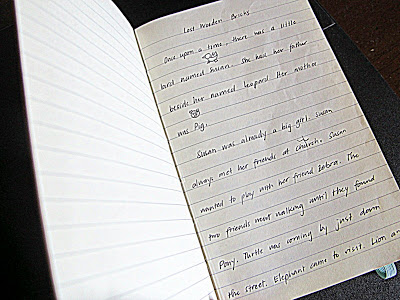 Lost Wooden Bricks
Once upon a time, there was a little
bird named Susan. She had her father
beside her named leopard. Her mother
was Pig.
Susan was already a big girl. Susan
always met her friends at church. Susan
wanted to play with her friend Zebra. The
two friends went walking until they found
Pony. Turtle was coming by just down
the street. Elephant came to visit. Lion an